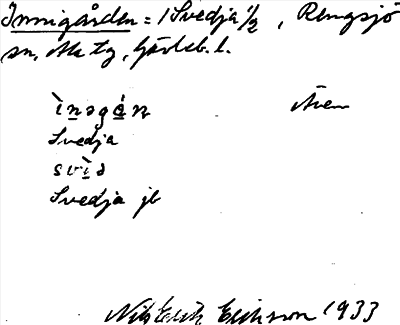 Innigården = 1 Svedja 1/2, Rengsjö
sn, Ala tg, Gävleb. l.
ìnəgá̱n Åven
Svedja
svì̱ə
Svedja jb
Nils Erik Erikson 1933